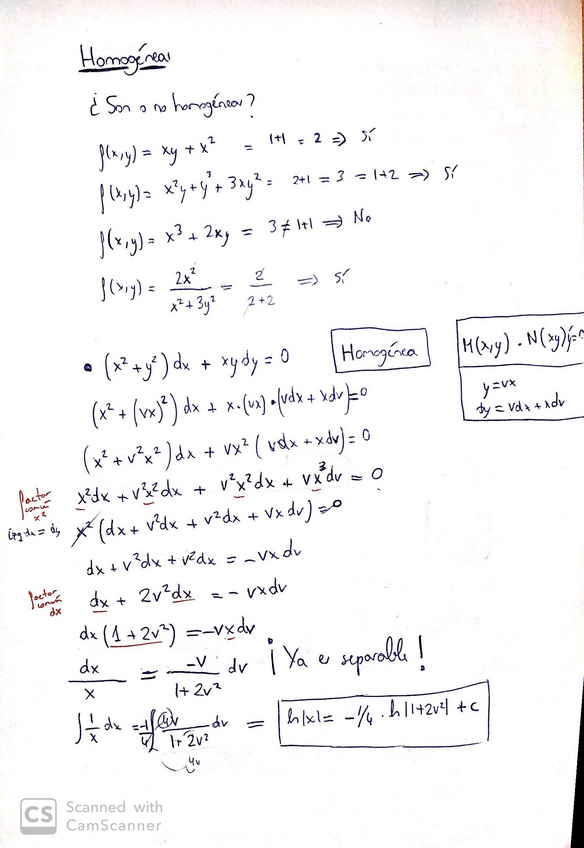 Homogéneas
¿Son o no homogéneas?
f(x,y) = xy + x² = 1+1 = 2 ⇒ Sí
f(x,y) = x²y + y³ + 3xy² = 2+1 = 3 = 1+2 ⇒ Sí
f(x,y) = x³ + 2xy = 3 ≠ 1+1 ⇒ No
f(x,y) = 2x² / (x² + 3y²) = 2 / (2+2) ⇒ Sí
• (x² + y²) dx + xy dy = 0
Homogénea
M(x,y) · N(xy)
y = vx
dy = vdx + xdv
(x² + (vx)²) dx + x·(vx)·(vdx + xdv) = 0
(x² + v²x²) dx + vx² (vdx + xdv) = 0
factor común x²
x²dx + v²x²dx + v²x²dx + vx³dv = 0
x² (dx + v²dx + v²dx + vx dv) = 0
dx + v²dx + v²dx = -vx dv
factor común dx
dx + 2v²dx = -vx dv
dx (1 + 2v²) = -vx dv
dx / x = -v / (1 + 2v²) dv ¡Ya es separable!
∫ 1/x dx = -1/4 ∫ 4v / (1 + 2v²) dv = ln|x| = -1/4 · ln|1+2v²| + c
4v
CS Scanned with
CamScanner